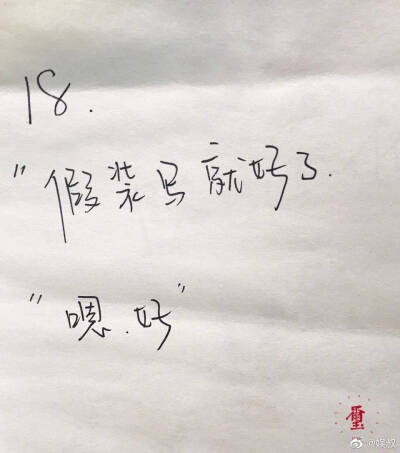 18.
"假装写就好了.
"嗯.好"
璽
@娱叔